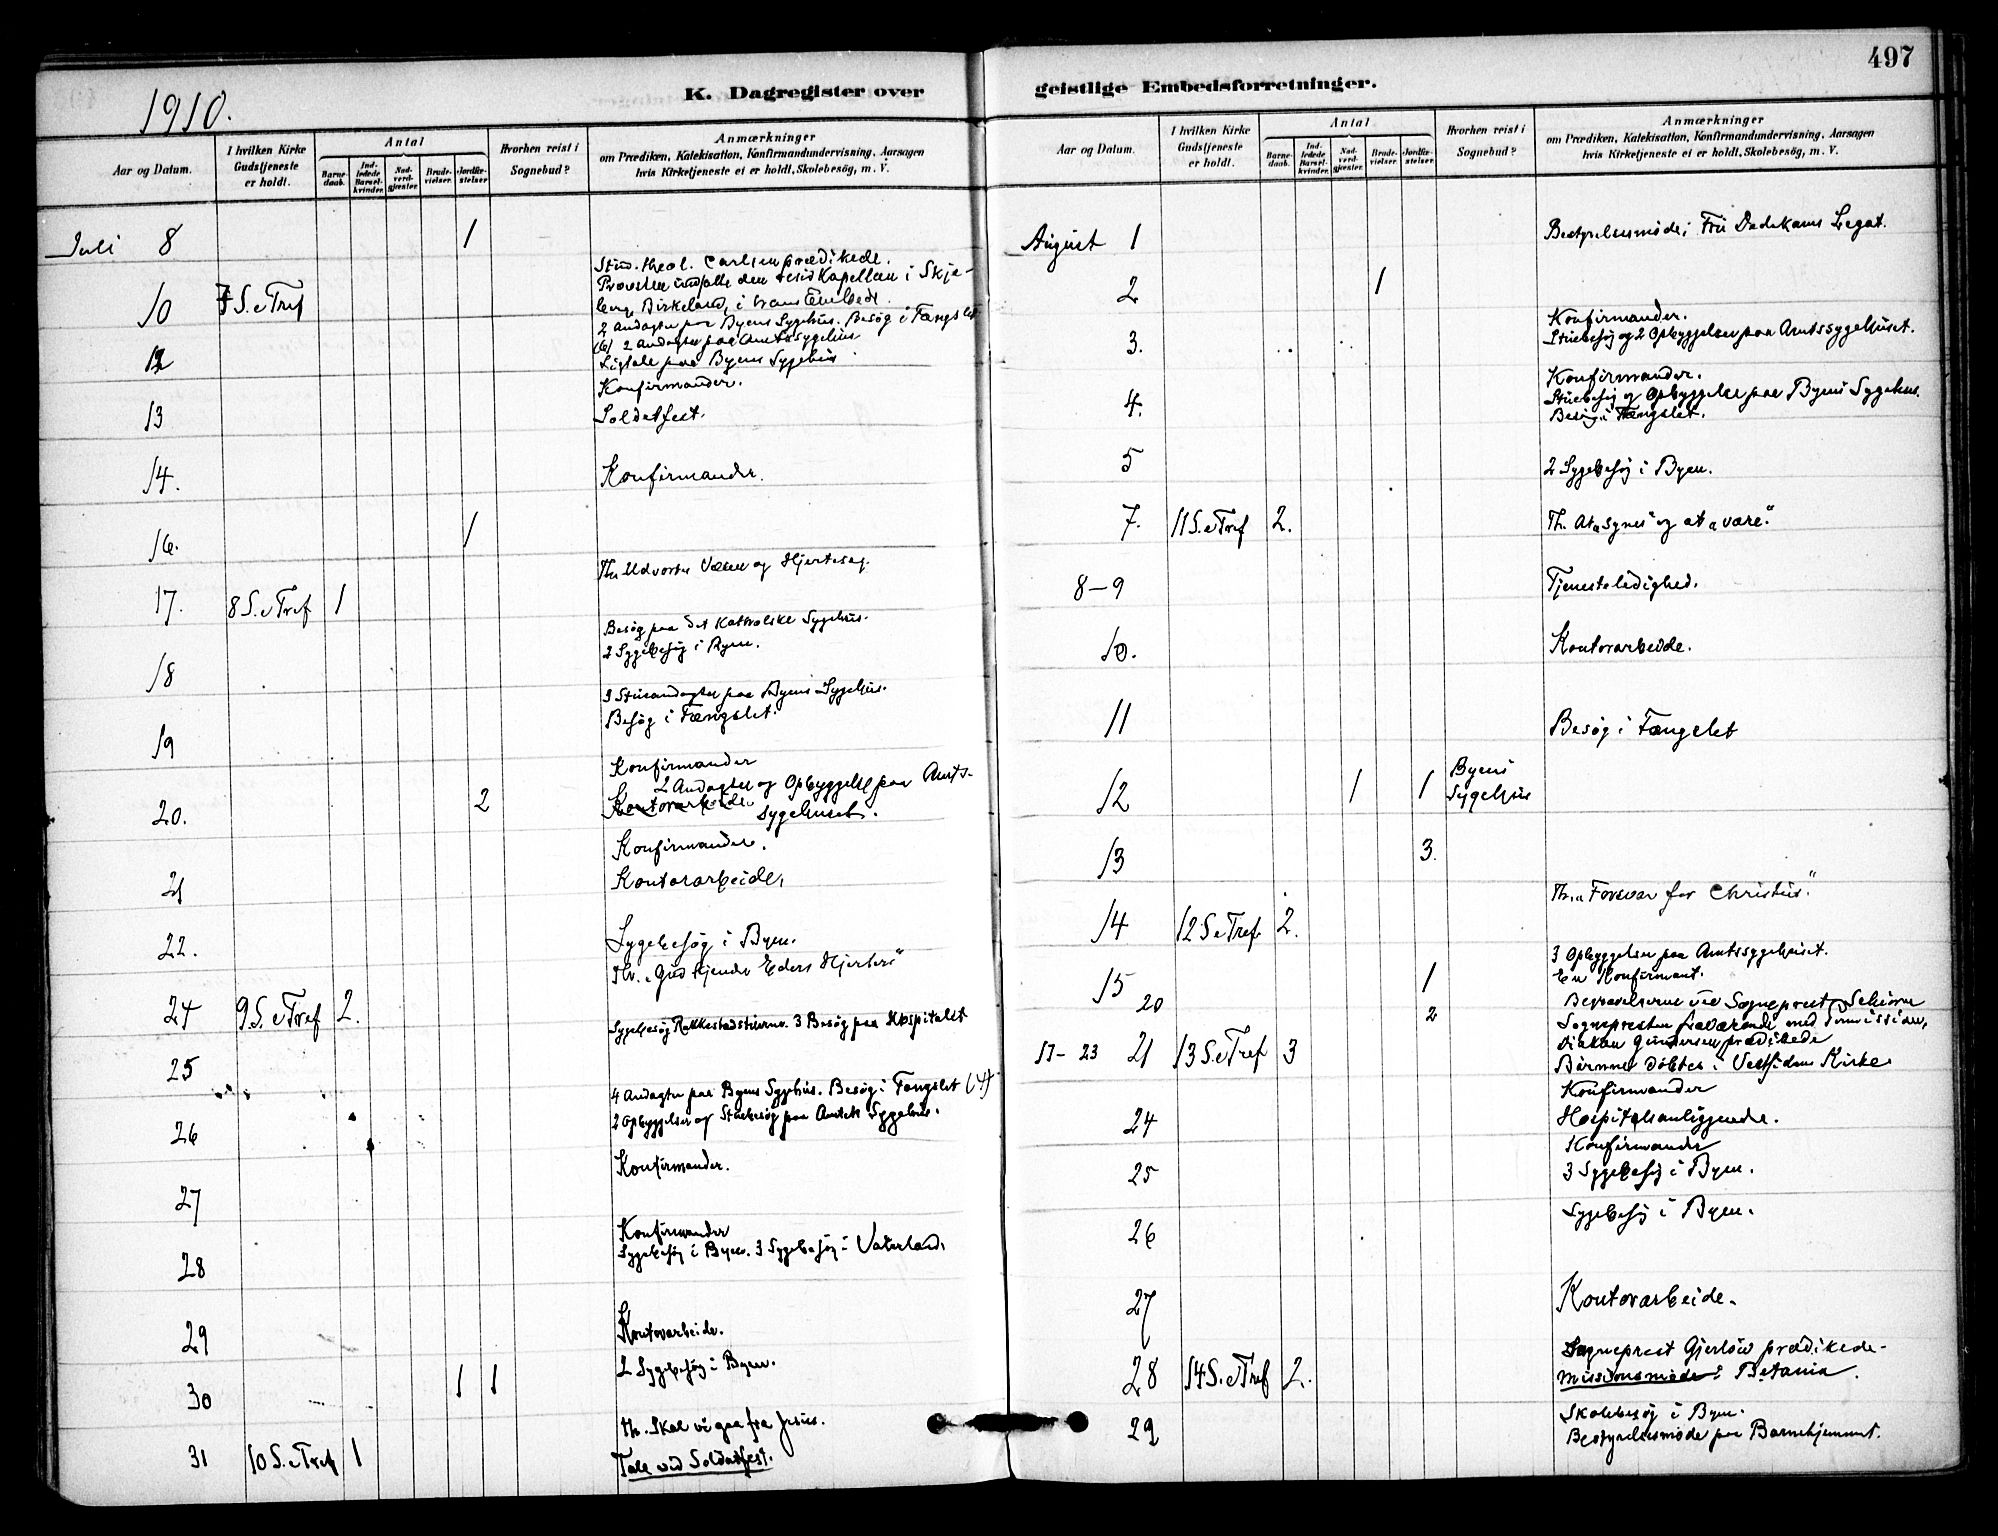 497
K. Dagregister over geistlige Embedsforretninger.
1910.
Aar og Datum.
I hvilken Kirke Gudstjeneste er holdt.
Antal
Barnedaab.
Indledede Barselkvinder.
Nadverdgjester.
Brudevielser.
Jordfæstelser.
Hvorhen reist i Sognebud?
Anmærkninger
om Prædiken, Katekisation, Konfirmandundervisning, Aarsagen
hvis Kirketjeneste ei er holdt, Skolebesøg, m. V.
Juli 8 1
Stud. theol. Carlsen prædikede.
Provsten indsatte den resid Kapellan i Skje-
berg, Birkeland, i hans Embede.
10 7 S. e Tref
2 Andagter paa Byens Sygehus. Besøg i Fængslet
(6) 2 Andagter paa Amtssygehus
12 Ligtale paa Byens Sygehus
Konfirmander.
13 Soldatfest.
14. Konfirmander.
16. 1
Th. Udvortes Væsen og Hjertesag.
17. 8 S. e Tref 1
Besøg paa det katholske Sygehus.
2 Sygebesøg i Byen.
18
3 Stueandagter paa Byens Sygehus.
Besøg i Fængslet.
19
Konfirmander
2 Andagter og Opbyggelse paa Amts-
20. 2 Kontorarbeide sygehuset.
Konfirmander.
21 Kontorarbeide,
22. Sygebesøg i Byen.
Th. „Gud kjender Eders Hjerter"
24 9 S. e Tref 2.
Sygebesøg Rakkestadsveien. 3 Besøg paa Hospitalet
25
4 Andagter paa Byens Sygehus. Besøg i Fængslet (4)
2 Opbyggelser og Stuebesøg paa Amtets Sygehus.
26
Konfirmander.
27
Konfirmander
Sygebesøg i Byen. 3 Sygebesøg i Vaterland,
28
29 Kontorarbeide.
30 1 1 2 Sygebesøg i Byen.
Th. Skal vi gaa fra Jesus.
31 10 S. e Tref 1 Tale ved Soldatfest.
Aar og Datum.
I hvilken Kirke Gudstjeneste er holdt.
Antal
Barnedaab.
Indledede Barselkvinder.
Nadverdgjester.
Brudevielser.
Jordfæstelser.
Hvorhen reist i Sognebud?
Anmærkninger
om Prædiken, Katekisation, Konfirmandundervisning, Aarsagen
hvis Kirketjeneste ei er holdt, Skolebesøg, m. V.
August 1 Bestyrelsesmøde i Fru Dedekams Legat.
2 1
Konfirmander.
3. Stuebesøg og 2 Opbyggelser paa Amtssygehuset.
Konfirmander.
4. Stuebesøg og Opbyggelse paa Byens Sygehus.
Besøg i Fængslet.
5 2 Sygebesøg i Byen.
7. 11 S. e Tref 2. Th. At „synes" og at „være".
8–9 Tjenesteledighed.
10. Kontorarbeide.
11 Besøg i Fængslet
12 1 1 Byens Sygehus
13 3.
Th. „Forsvar for Christus."
14 12 S e Tref. 2.
3 Opbyggelser paa Amtssygehuset.
15 1 En Konfirmant.
20 2 Begravelserne ved Sogneprest Schiørn
Sognepresten fraværende med Permission,
17–23 21 13 S. e Tref 3 Diakon Gundersen prædikede
Børnene døbtes i Vestsidens Kirke
Konfirmander
24 Hospitalsanliggender.
Konfirmander
25 3 Sygebesøg i Byen.
26 Sygebesøg i Byen.
27 Kontorarbeide.
Sogneprest Gjerløw prædikede.
28 14 S. e Tref 2. Missionsmøde i Betania.
Skolebesøg i Byen.
29 Bestyrelsesmøde paa Barnehjemmet.